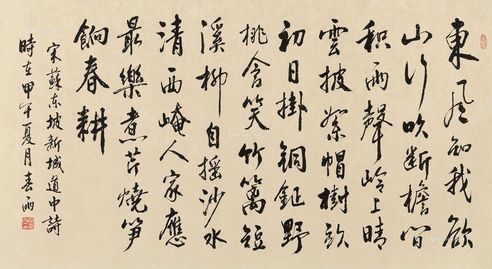 東風知我欲
山行吹斷檐間
積雨聲岭上晴
雲披絮帽樹頭
初日掛銅鉦野
桃含笑竹篱短
溪柳自摇沙水
清西崦人家應
最樂煮芹燒笋
餉春耕
宋蘇东坡新城道中詩
時在甲午夏月春雨